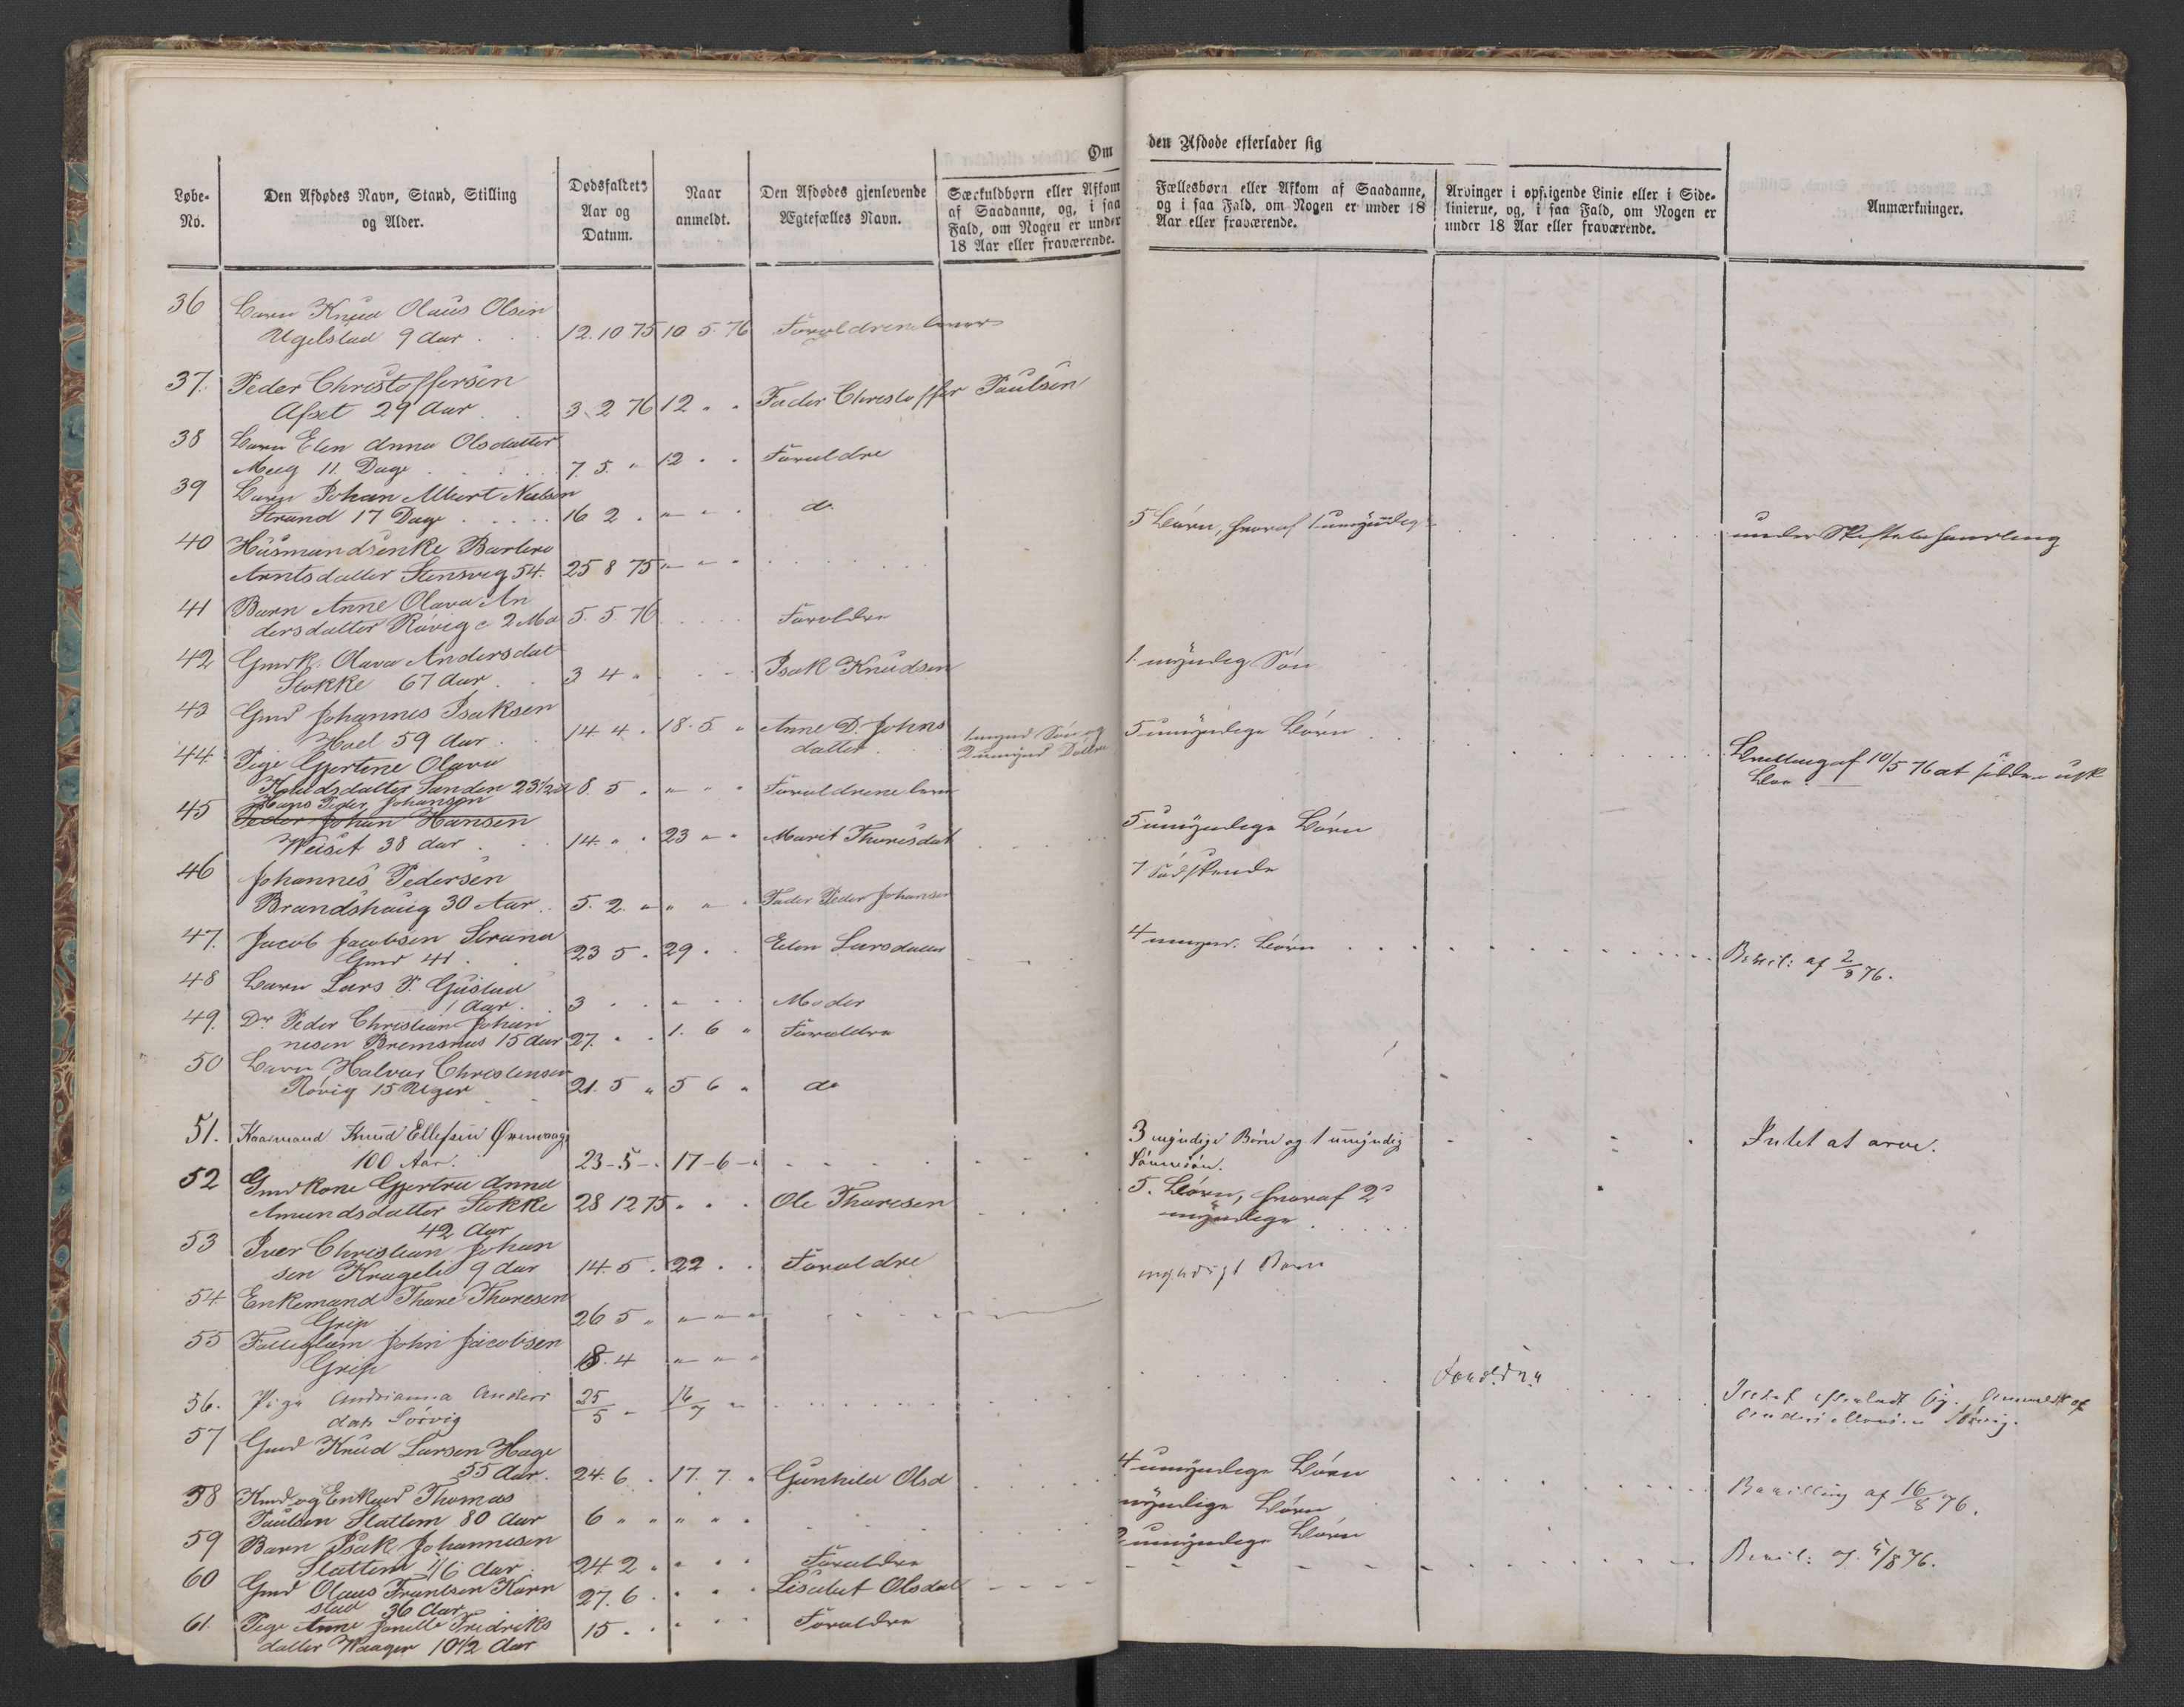 Om den Afdøde efterlader sig
Løbe-No.
Den Afdødes Navn, Stand, Stilling og Alder.
Dødsfaldets Aar og Datum.
Naar anmeldt.
Den Afdødes gjenlevende Ægtefælles Navn.
Særkuldbørn eller Afkom af Saadanne, og, i saa Fald, om Nogen er under 18 Aar eller fraværende.
Fællesbørn eller Afkom af Saadanne, og i saa Fald, om Nogen er under 18 Aar eller fraværende.
Arvinger i opstigende Linie eller i Sidelinierne, og, i saa Fald, om Nogen er under 18 Aar eller fraværende.
Anmærkninger.
36 Barn Knud Olaus Olsen
Ugelstad 9 Aar . 12.10 75 10 5. 76 Forældrene lever
37. Peder Christoffersen
Afset 29 Aar . 3. 2 76 12 " " Fader Christoffer Paulsen
38 Barn Elen Anna Olsdatter
Meeg 11. Dage 7. 5. " 12 " " Forældre
39 Barn Johan Albert Nielsen
Strand 17 Dage 16 2 . " " " do
40 Husmandsenke Barbro
Arntsdatter Stensvig 54. 25 8 75 " " " 5 Børn, hvoraf 1 umyndig under Skiftebehandling
41 Barn Anne Olava An
dersdatter Røvig c 2 Md 5. 5. 76 Forældre
42 Gmdk. Olava Andersdat
Stokke 67 Aar 3 4 " Isak Knudsen 1. myndig Søn
43 Gmd Johannes Isaksen
Hoel 59 Aar 14. 4. 18. 5 " Anne D. Johns
datter 1 mynd Søn og
2 umynd Døttre 5 umyndige Børn
44. Pige Gjertine Olava
Knudsdatter Sanden 23 1/2 8. 5 " " " Forældrene lever
Bevilling af 10/5 76 at sidde i usk
Bo
45 Hans Peder Johansen
Peder Johan Hansen
Weiset 38 Aar 14. " . 23 " " Marit Thoresdat 5 umyndige Børn
46 Johannes Pedersen
Brandshaug 30 Aar. 5. 2. " " " Fader Peder Johansen 7 Sødskende
47. Jacob Jacobsen Strand
Gmd 41. 23 5. 29 . . Elen Larsdatter 4 umynd. Børn Bevil: af 2/8 76.
48 Barn Lars P. Gustad
1 Aar. 3 . . " . . Moder
49. Dr Peder Christian Johan
nesen Bremsnes 15 Aar 27. " . 1. 6 " Forældre
50 Barn Halvor Christensen
Røvig 15 Uger 21. 5 " 5 6 " do
51. Kaarmand Knud Ellefsen Øvervaag
100 Aar. 23-5-. 17-6-" 3 myndige Børn og 1 umyndig
Sønnesøn. Intet at arve.
52 Gmdkone Gjertru Anna
Amundsdatter Stokke
42 Aar 28 12 75 " . . Ole Thoresen 5. Børn, hvoraf 2
myndige
53 Iver Christian Johan
sen Kragelie 9 Aar 14. 5 . 22 . . Forældre
54. Enkemand Thore Thoresen
Grip 26 5 " " " " myndigt Barn
55 Fattiglem John Jacobsen
Grip 18. 4 " " "
56. Pige Andrianna Anders
dat Sørvig 25/5 - 16/7 " Forældre
Intet efterladt
57 Gmd Knud Larsen Hage
55 Aar. 24. 6 . 17. 7. " Gunhild Olsd 4 umyndige Børn Bevilling af 16/8 76.
58 Kmd og Enkmd Thomas
Paulsen Slattem 80 Aar 6 " " " " " myndige Børn
59 Barn Isak Johannesen
Slattem 1/6 Aar. 24 2 " " " " Forældre
60 Gmd Olaus Frantsen Karn
stad 36 Aar 27. 6 . " " " Lisabet Olsdat 2 umyndige Børn Bevil: af 4/8 76.
61. Pige Anne Janette Fredriks
datter Waagen 10 1/2 Aar 15 . . " " Forældre